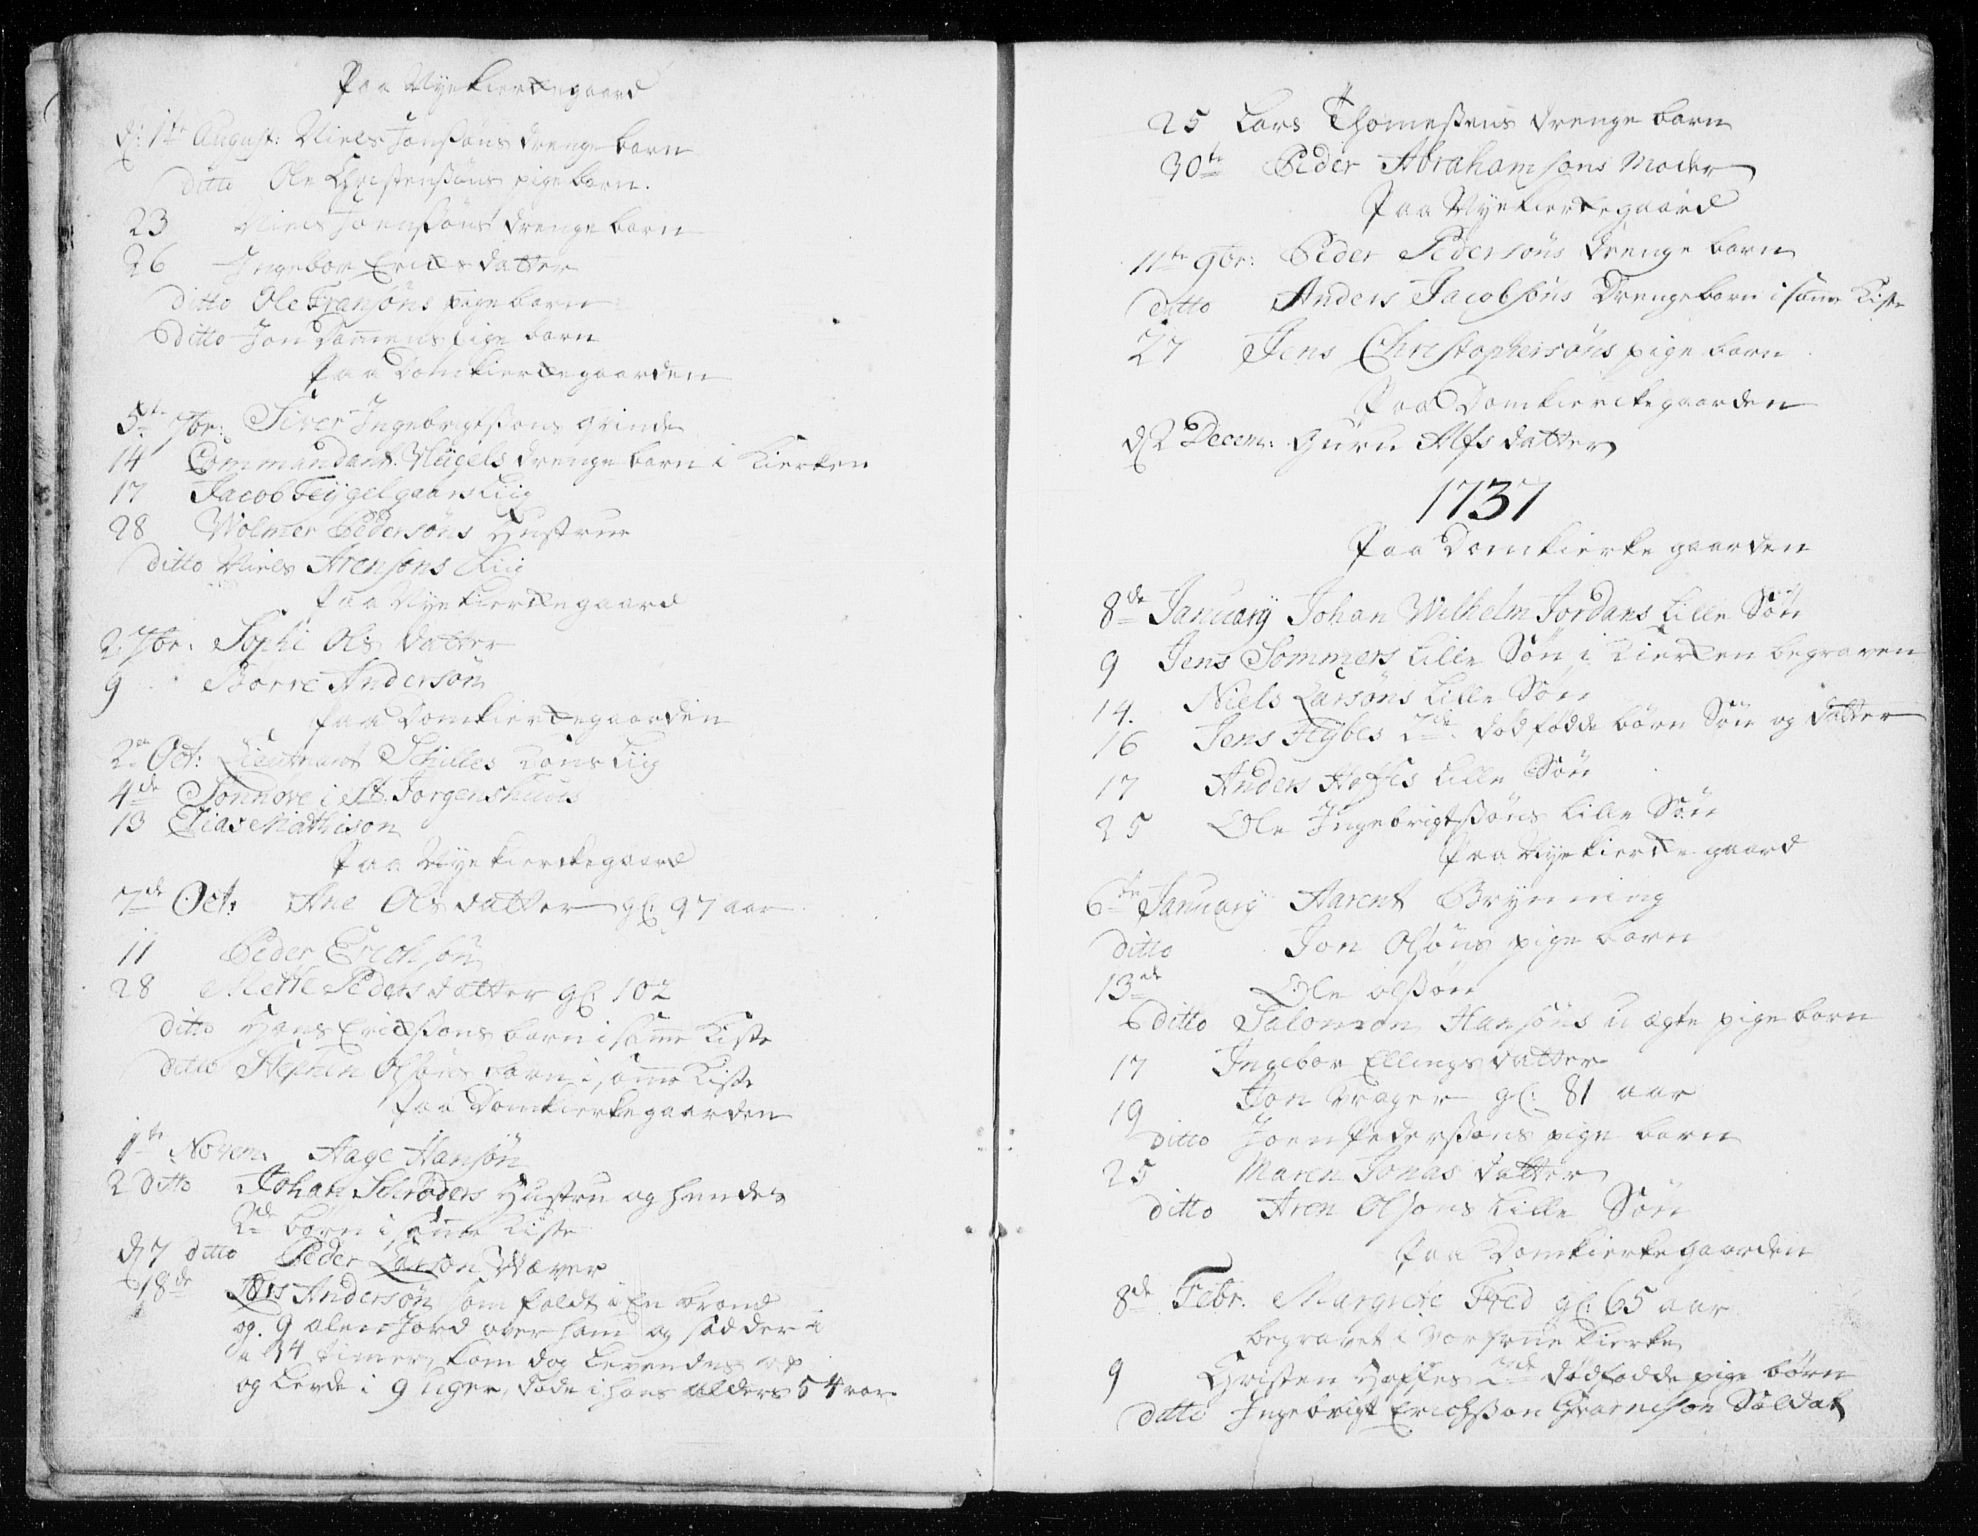 Paa Nye Kierkegaard
d: 1te August: Niels Jonssøns drenge barn
ditto Ole Christenssøns pige barn.
23 Niels Joenssøns drenge barn
26 Ingebor Erichs datter
ditto Ole Fransøns pige barn
ditto Jon Damens pige barn
Paa Domkierkegaarden
5te 7br: Siver Ingebrigtssøns qvinde
14 Commandant Nügels drenge barn i Kierken
17 Jacob Feygel gaars Liig
28 Wolmer Pedersøns Hustrue
ditto Niels Arensøns Liig
Paa Nye Kierkegaard
2 7br: Sophi Ols datter
9 Børre Andersøn
Paa Domkierkegaarden
2en Oct: Lieutnant Schultes Kons Liig
4de Sønnove i St. Jørgenshuus
13 Elias Mathisøn
Paa Nye Kierkegaard
7de Oct: Ane Ols datter gl: 97 aar
11 Peder Erichsøn
28 Mette Peders datter gl: 102
ditto Hans Erichssøns barn i same Kiste
ditto Stephen Olsøns barn i same Kiste
Paa Domkierkegaarden
1te Novem: Aage Hansøn
2 ditto Johan Schrøders Hustru og hendes
2de børn i same Kiste
d 7 ditto Peder Larsøn Wæver
18de Lars Andersøn som faldt i En brond
og 9 alen Jord over ham og sad der i
i 34 timer, kom dog levendes op
og levde i 9 uger, døde i hans alders 54 aar
25 Lars Thomessens drenge barn
30te Peder Abrahamsøns Moder
Paa Nye Kierkegaard
11te 9br: Peder Pedersøns drenge barn
ditto Anders Jacobsøns drengebarn i same Kiste
27 Jens Christophersøns pige barn
Paa Domkierckegaarden
d 2 Decem: Guru Alfs datter
1737
Paa Domkierkegaarden
8de January Johan Wilhelm Jordans Lille Søn
9 Jens Sommers Lille Søn i Kierken begraven
14. Niels Larsøns Lille Søn
16 Jens Fiybes 2de dødfødde børn Søn og datter
17 Anders Hoffes Lille Søn
25 Ole Ingebrigtssøns Lille Søn
Paa Nye Kierkegaard
6te January Aarent Brynning
ditto Jon Olsøns pige barn
13de Ole Olssøn
ditto Salomon Hansøns u ægte pige barn
17 Ingebor Ellings datter
19 Jon Drager gl: 81 aar
ditto Joen Pederssøns pige barn
25 Maren Jonas datter
ditto Aren Olsøns Lille Søn
Paa Domkierkegaarden
8de Febr. Margrete Fred gl: 65 aar
begravet i Vor frue Kierke
9 Christen Hoffes 2de dødfødde pige børn
ditto Ingebrigt Erichssøn Guarnison Soldat